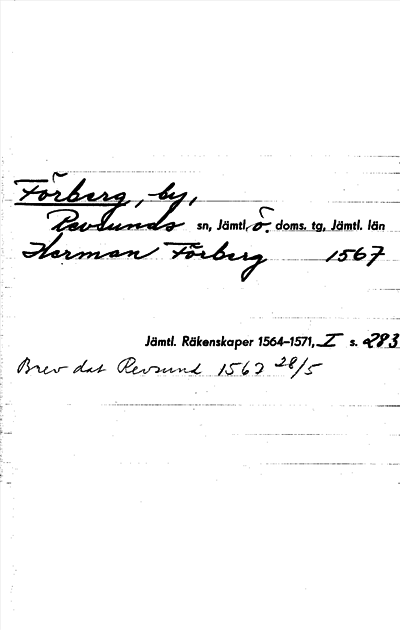 Förberg, by,
Revsunds sn, Jämtl, ö. doms. tg, Jämtl. län
Herman Förberg 1567
Jämtl. Räkenskaper 1564–1571, I s. 283
Brev dat Revsund 1567 28/5